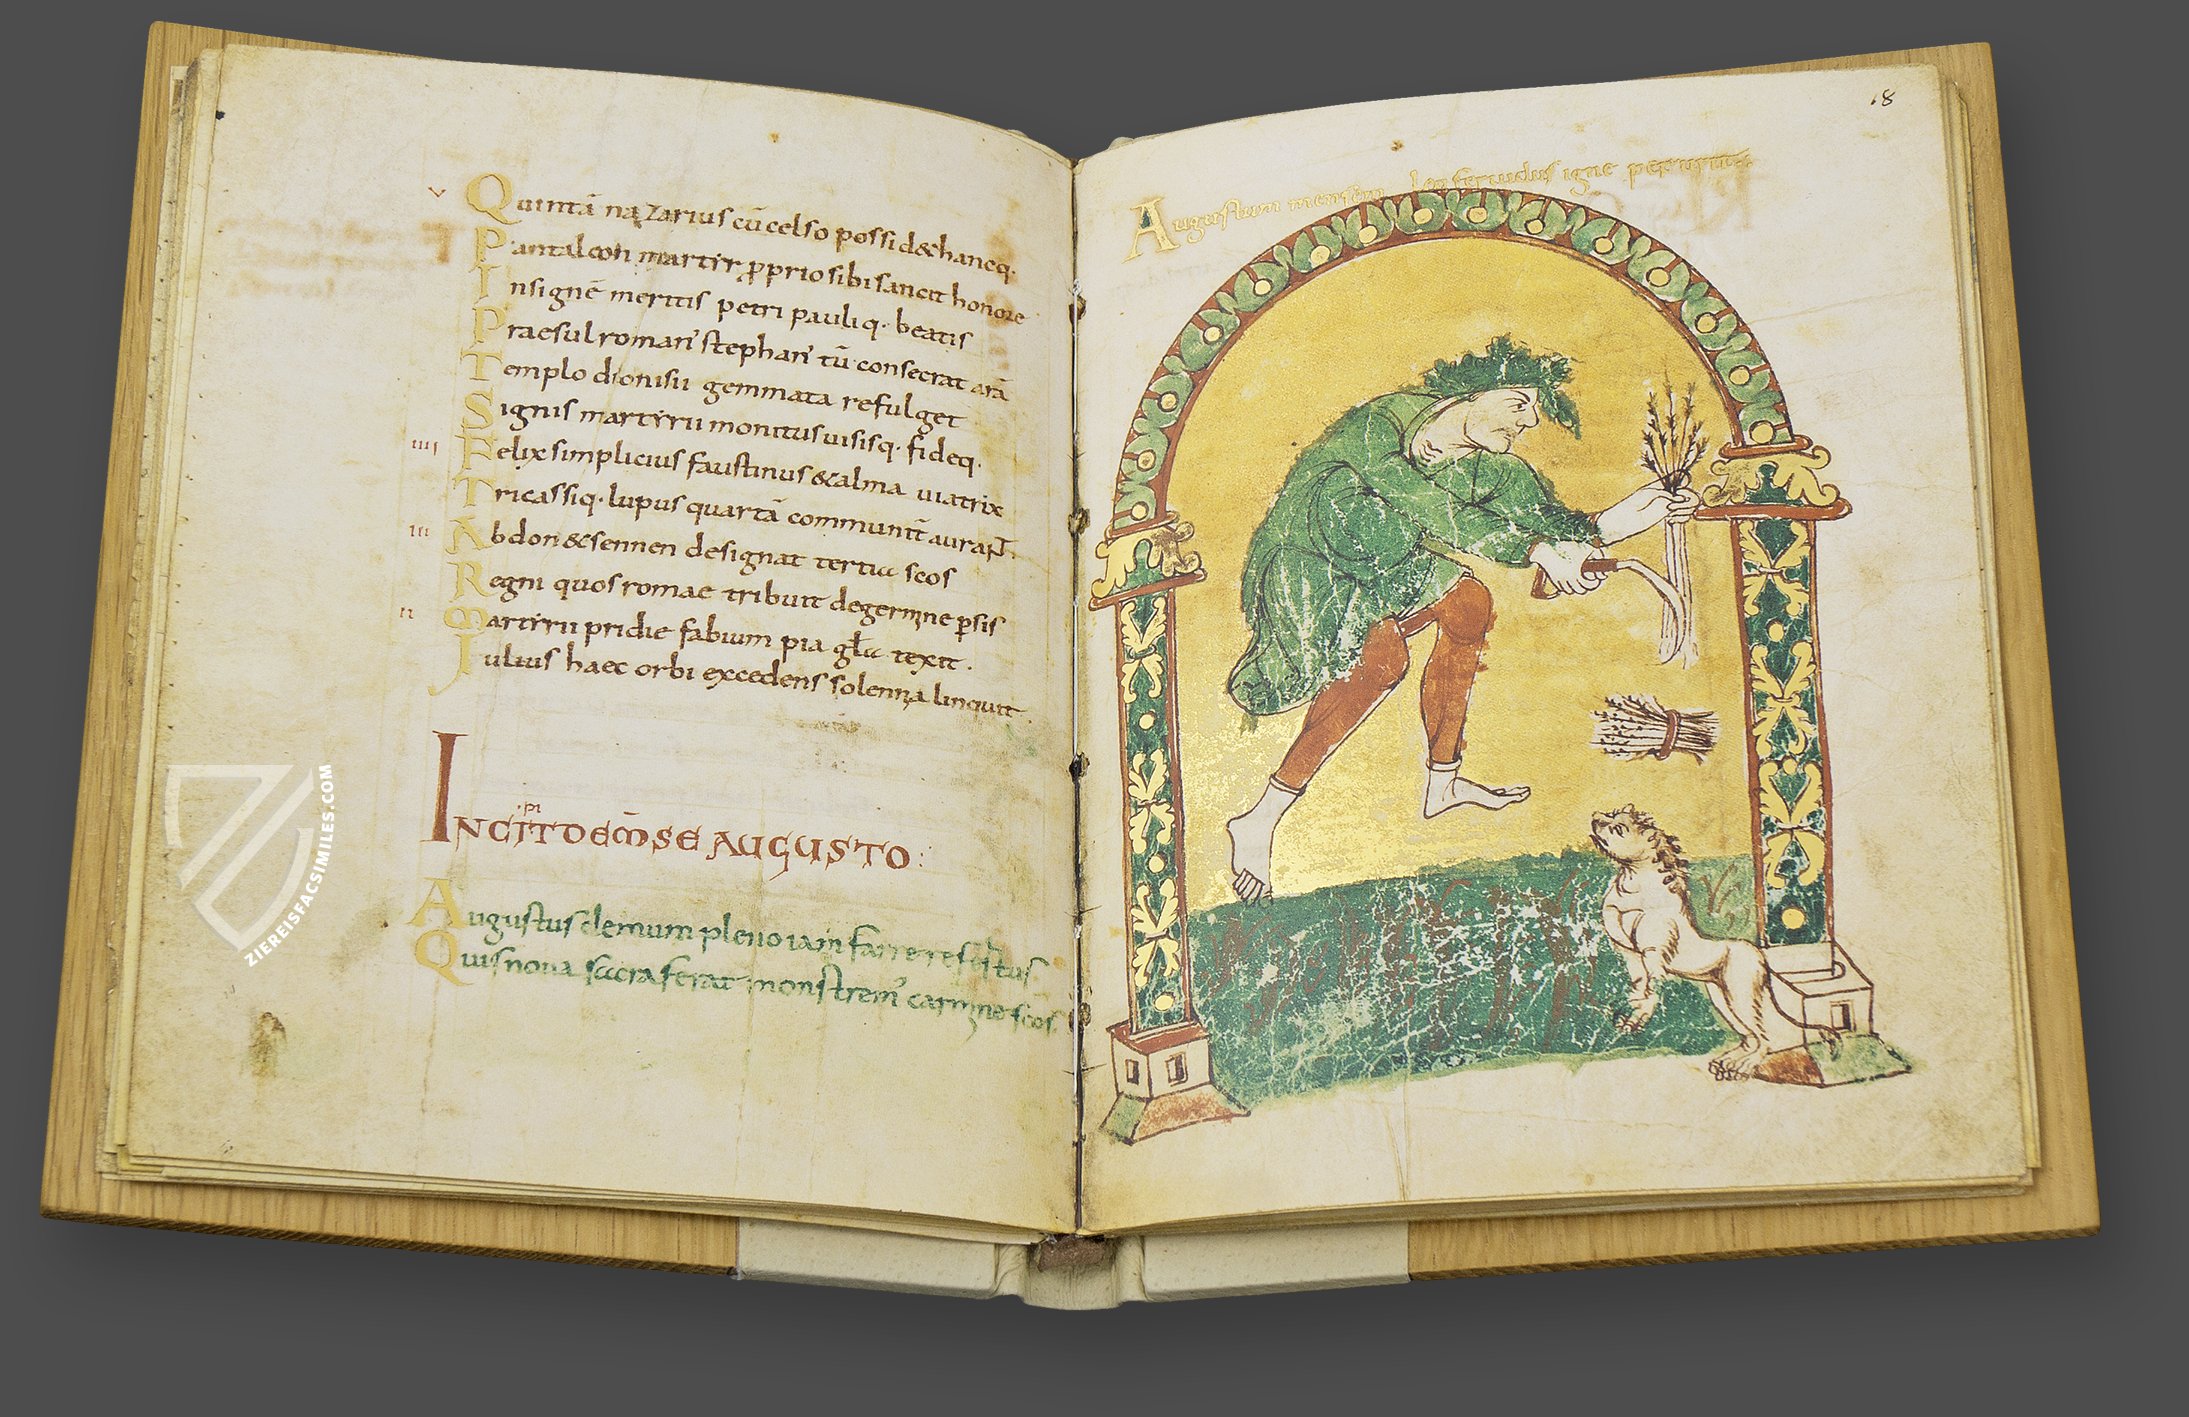 v
Quintā nazarius cū celso possid&hancq·
Pantaleon martyr ꝓprio sibi sancit honore
Insignē meritis petri pauliq· beatis
Praesul roman' stephan' tū consecrat arā
Templo dionisii gemmata refulget
Signis martyrii monitus uisisq· fideq·
iiii Felix simplicius faustinus &alma uiatrix
Tricassiq· lupus quartā communit
iii Abdon&sennen designat tertia scos
Regni quos romae tribuit degermine ꝑsis
ii Martyrii pridie fabium pia gła texit·
Iulius haec orbi excedens solennia linquit·
INCIPIT DE MSE AUGUSTO:
Augustus demum pleno iam farre refertus
Quis noua sacra ferat monstrem' carmine scos
18
Augustum mensem leo feruidus igne perurit
ZIEREISFACSIMILES.COM